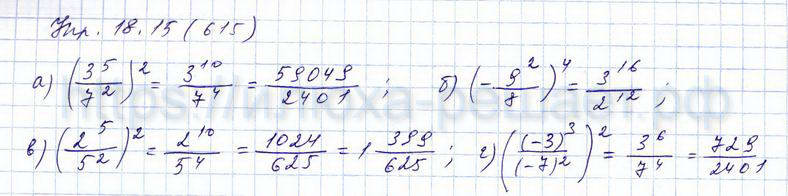 Упр. 18.15 (615)
а) (3^5/7^2)^2 = 3^10/7^4 = 59049/2401 ; б) (-9^2/8)^4 = 3^16/2^12 ;
в) (2^5/5^2)^2 = 2^10/5^4 = 1024/625 = 1 399/625 ; г) ((-3)^3/(-7)^2)^2 = 3^6/7^4 = 729/2401